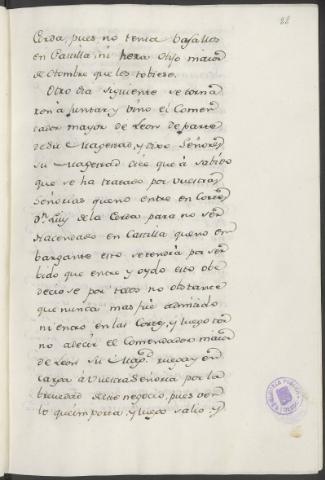 22
Cerda, pues no tenia basallos
en Castilla, ni hera Hijo maior
de otombre que los tobiese.
Otro dia siguiente se torna
ron a juntar, y vino el Comen
dador mayor de Leon de parte
de su Magestad, y dixo Señores
su Magestad dice que à sabido
que se ha tratado por vuestras
Señorias que no entre en Cortes
Dn. Luis de la Cerda para no ser
Hacendado en Castilla que no em
bargante esto se tendrà por ser
bido que entre y oydo esto obe
deciose por todos no obstante
que nunca mas fue admitido
ni entro en las Cortes, y luego tor
no a decir el Comendador maior
de Leon su Magd. ruega y en
carga à Vuestra Señoria por la
brevedad deste negocio, pues ven
lo que importa, y luego salio, y
BIBLIOTECA PUBLICA